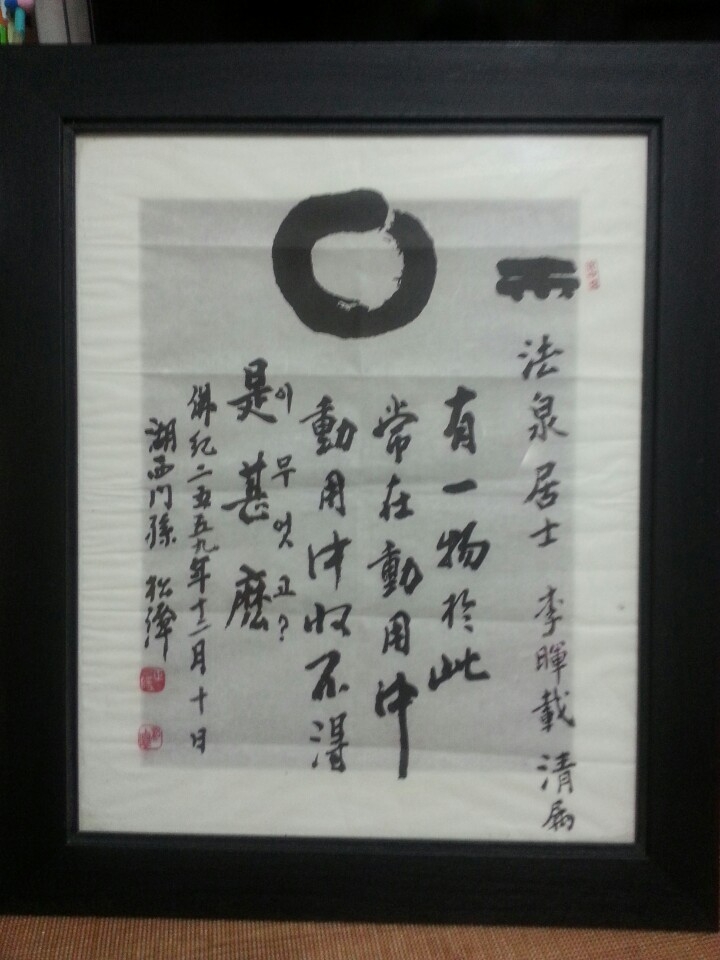 法泉居士 李暉載 清屬
有一物於此
常在動用中
動用中收不得
是甚麽
이 무엇고?
佛紀二五五九年十二月十日
湖西門孫 松潭